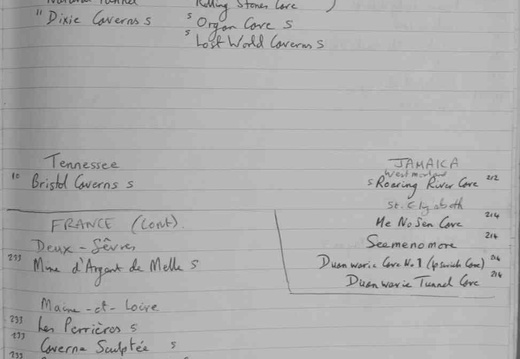 Rolling Stones Cave )
" Dixie Caverns s
s Organ Cave s
s Lost World Caverns s
Tennessee
Bristol Caverns s
JAMAICA
Westmorland
s Roaring River Cave 212
St. Elizabeth
Me No Sen Cave 214
Seemenomore 214
Duanwarie Cave No. 1 (Ipswich Cave) 214
Duanwarie Tunnel Cave 214
FRANCE (Cont).
Deux-Sèvres
233 Mine d'Argent de Melle s
Maine-et-Loire
233 Les Perrières s
233 Caverne Sculptée s
233